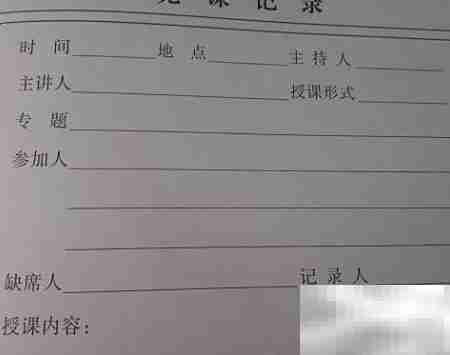 课记录
时 间 地 点 主 持 人
主讲人 授课形式
专 题
参加人
缺席人 记 录 人
授课内容：